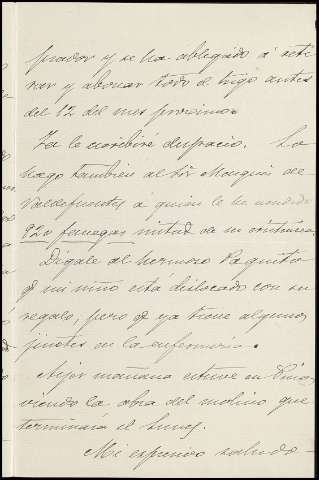 prador y se ha obligado á reti-
rar y abonar todo el trigo antes
del 12 del mes proximo.
Ya le escribiré despacio. Lo
hago tambien al Sr Marqués de
Valdefuentes á quien le he vendido
920 fanegas mitad de su existencia.
Digale al hermoso Paquito
q̃ mi niño está dislocado con su
regalo, pero q̃ ya tiene algunos
jinetes en la enfermeria.
Ayer mañana estuve en
viendo la obra del molino que
terminaría el lunes.
Mi expresivo saludo